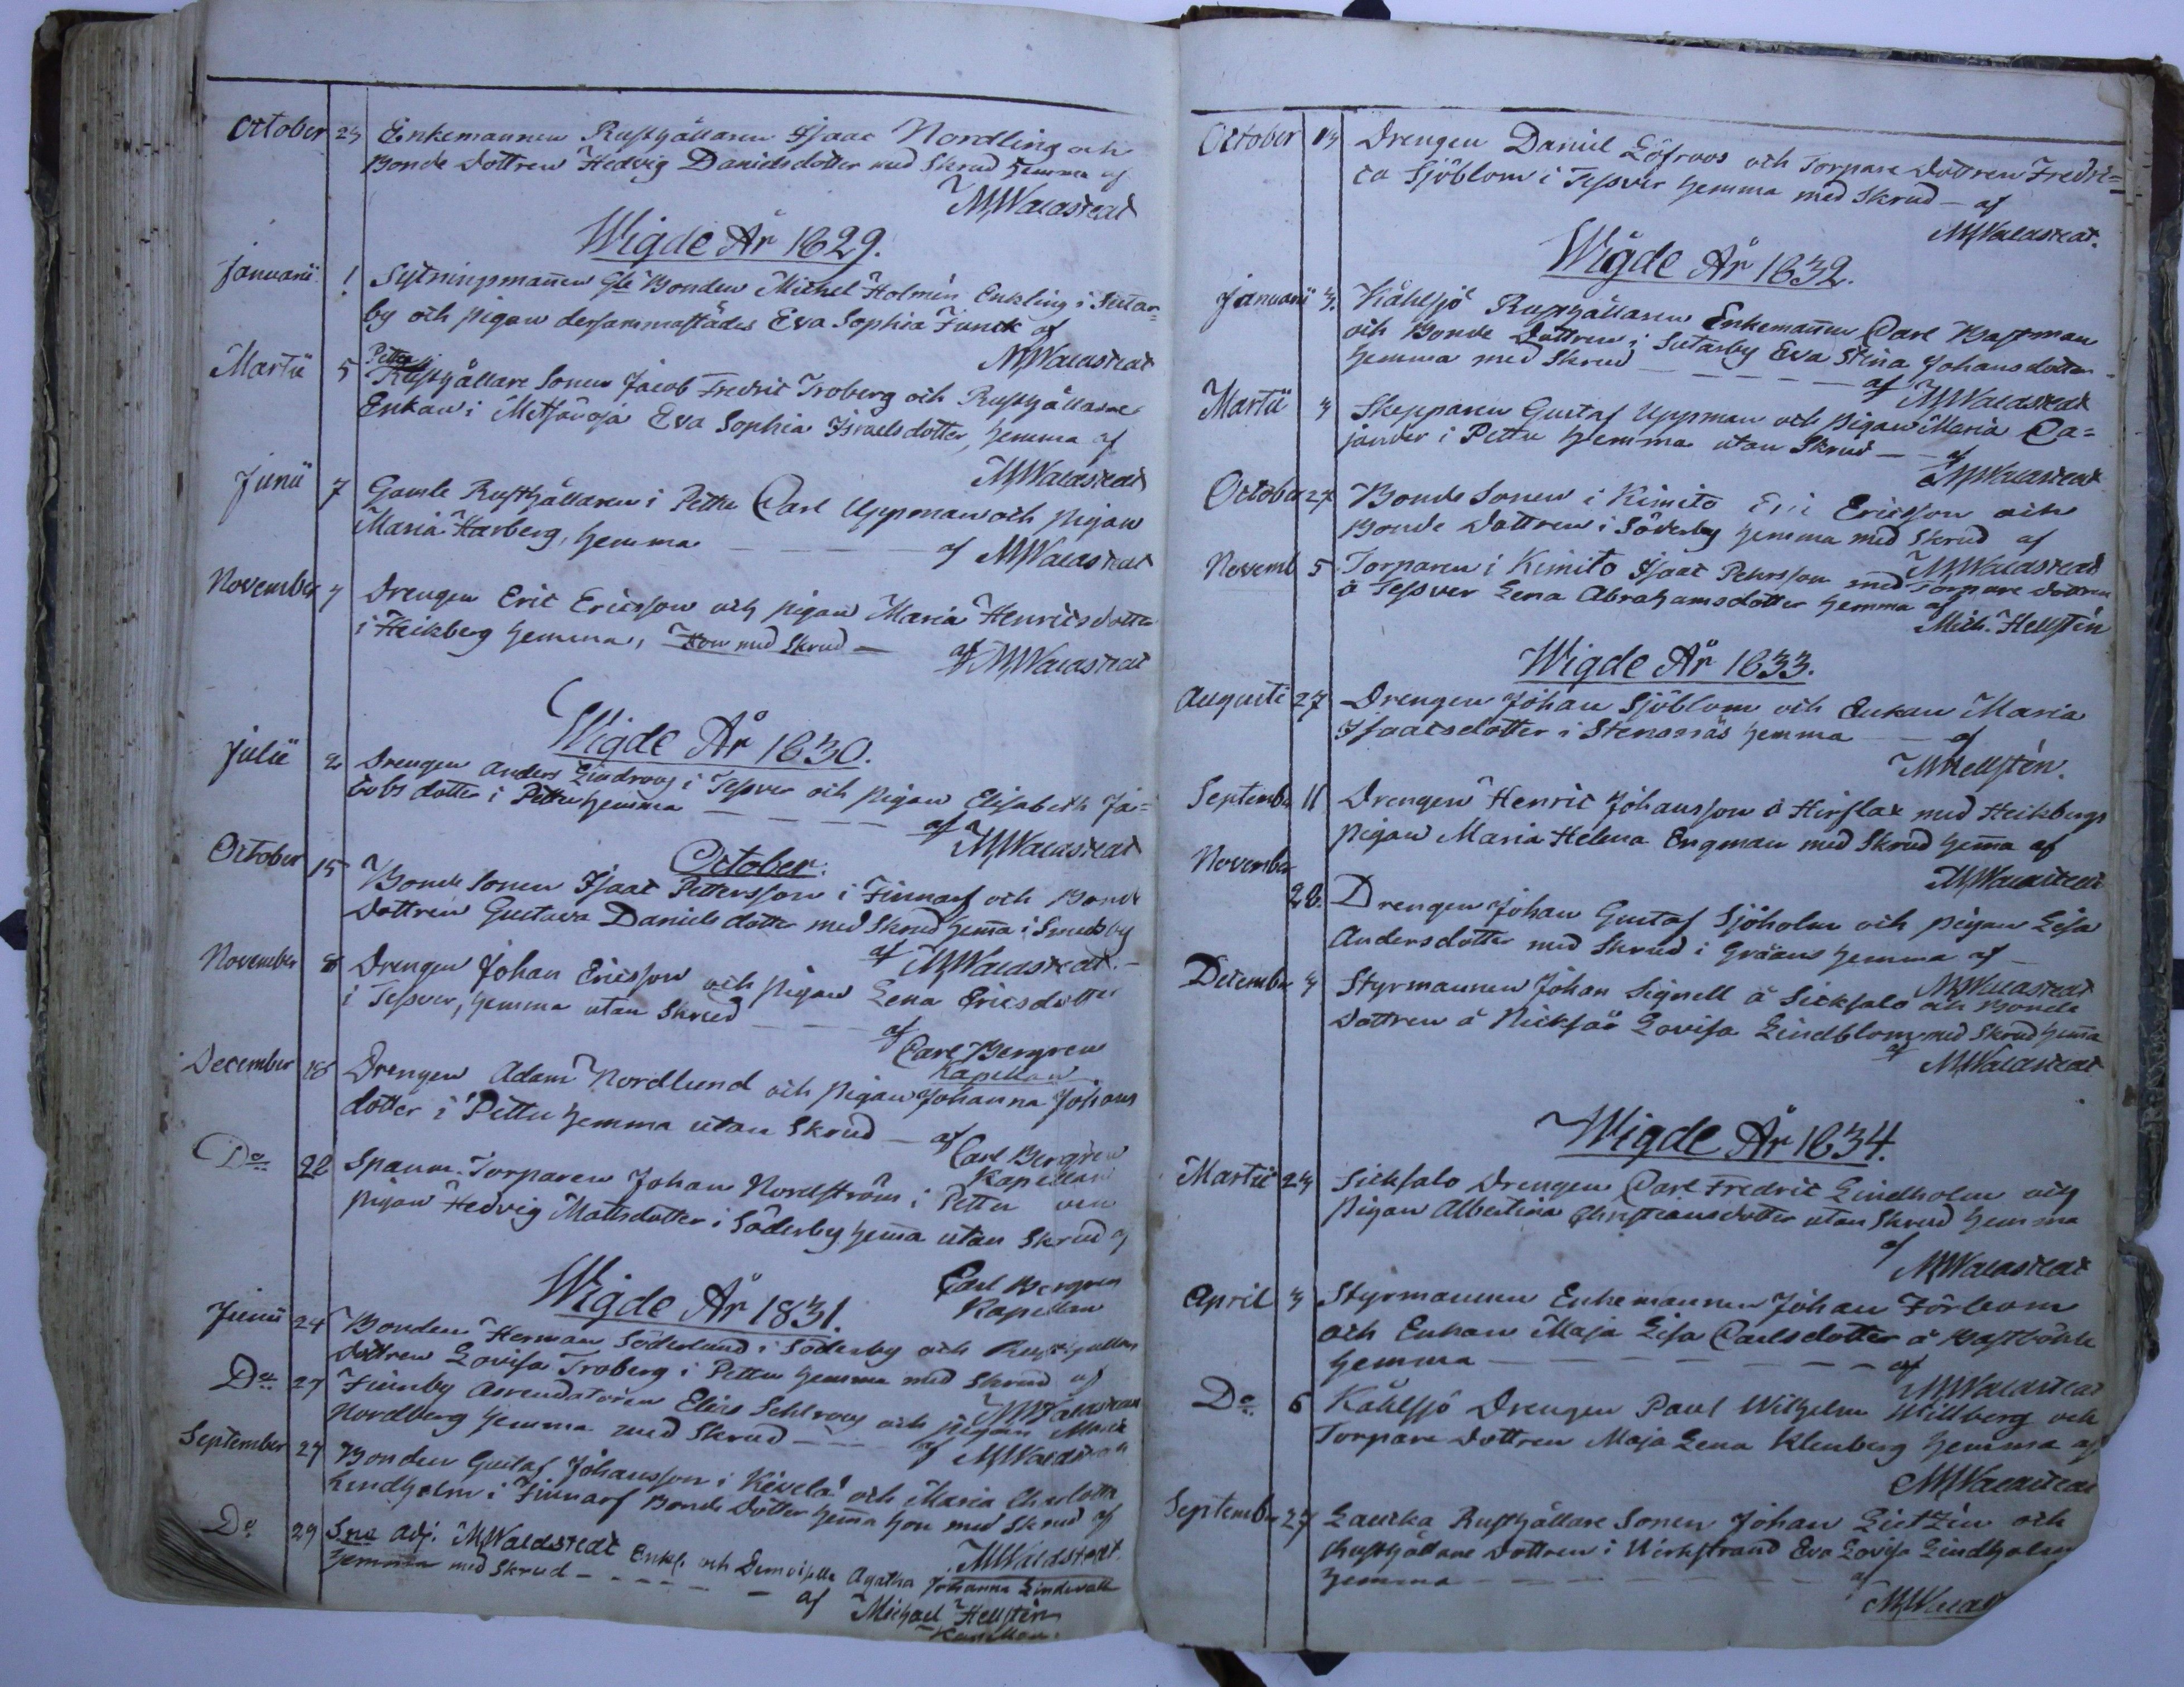 October 24 Enkemannen Rusthållaren Isaac Nordling och
Bonde Dottren Hedvig Danielsdotter med Skrud hemma af
MWaldstedt
Wigde År 1829.
Januarii 1 Sytningsmañen Gle Bonden Michel Holmén Enkling i Sutar=
by och pigan dersammastädes Eva Sophia Funck af
MWaldstedt
Martii 5 Pettu
Rusthållare Sonen Jacob Fredric Troberg och Rusthållare
Enkan i Eva Sophia Israelsdotter, hemma af
MWaldstedt
Junii 7 Gamle Rusthållaren i Pettu Carl Uppman och pigan
Maria Harberg, hemma — — — af MWaldstedt
November 4 Drengen Eric Ericsson och pigan Maria Henricsdotter
i Heikberg hemma, Hon med Skrud — af MWaldstedt
Wigde År 1830.
Julii 2 Drengen Anders Lindroos i Tessver och pigan Elisabeth Ja=
cobsdotter i Pettu hemma — — — af
MWaldstedt
October.
October 15 Bonde Sonen Isaac Pettersson i Finnarf och Bonde
Dottren Gustava Danielsdotter med Skrud hem̃a i Smedsby
af MWaldstedt.
November 8 Drengen Johan Ericsson och pigan Lena Ericsdotter
i Tessver, hemma utan Skrud — —
af Carl Bergren
Kapellan
December 18 Drengen Adam Nordlund och pigan Johanna Johans
dotter i Pettu hemma utan Skrud — af
Carl Bergren
Kapellan
Do 28 Spanm. Torparen Johan Nordström i Pettu och
pigan Hedvig Mattsdotter i Söderby hem̃a utan Skrud af
Carl Bergren
Kapellan
Wigde År 1831.
Junii 24 Bonden Herman Söderlund i Söderby och Rusthållare
Dottren Lovisa Troberg i Pettu hemma med Skrud af
MWaldstedt
Do 27 Finnby Arrendatoren Elias Sehlroos och pigan Maria
Nordberg hemma med Skrud — — af MWaldstedt
September 27 Bonden Gustaf Johansson i Kevela och Maria Charlotta
Lindholm i Finnarf Bonde Dotter hem̃a hon med Skrud af
MWaldstedt.
Do 29 Sne Adj. MWaldstedt Enkl. och Demoiselle Agatha Johanna Lindevall
hemma med Skrud — — — af
Michael Hellstén
Kapellan.
October 14 Drengen Daniel Löfroos och Torpare Dottren Fredri=
ca Sjöblom i Tessver hemma med Skrud — af
MWaldstedt.
Wigde År 1832.
Januarii 3. Kåhlsjö Rusthållaren Enkemañen Carl Bastman
och Bonde Dottren i Sutarby Eva Stina Johansdotter
hemma med Skrud — — — — af MWaldstedt
Martii 4 Skepparen Gustaf Uppman och pigan Maria Ca=
jander i Pettu hemma utan Skrud — — af
MWaldstedt
October 27 Bonde Sonen i Kimito Eric Ericsson och
Bonde Dottren i Söderby hemma med Skrud af
MWaldstedt
Novemb 5 Torparen i Kimito Isaac Pehrsson med Torpare Dottren
å Tessver Lena Abrahamsdotter hemma af
Mich. Hellstén
Wigde År 1833.
Augusti 27 Drengen Johan Sjöblom och Enkan Maria
Isaacsdotter i Stensnäs hemma — — af
MHellstén.
Septemb 11 Drengen Henric Johansson å Hirslax med Heikbergs
pigan Maria Helena Engman med Skrud hem̃a af
MWaldstedt
November
28. Drengen Johan Gustaf Sjöholm och pigan Lisa
Andersdotter med Skrud i Gräans hemma af —
MWaldstedt
December 4 Styrmannen Johan Signell å Sicksalo och Bonde
Dottren å Nicksåå Lovisa Lindblom med Skrud hem̃a
af MWaldstedt
Wigde År 1834.
Martii 24 Sicksalo Drengen Carl Fredric Lindholm och
pigan Albertina Christiansdotter utan Skrud hemma
af MWaldstedt
April 4 Styrmannen Enkemannen Johan Förbom
och Enkan Maja Lisa Carlsdotter å
hemma — — — — — af
MWaldstedt
Do 6 Kåhlsjö Drengen Paul Wilhelm Willberg och
Torpare Dottren Maja Lena Klenberg hemma af
MWaldstedt
September 27 Laucka Rusthållare Sonen Johan Lietzén och
Rusthållare Dottren i Wirkstrand Eva Lovisa Lindholm
hemma — — — — — af
MWald